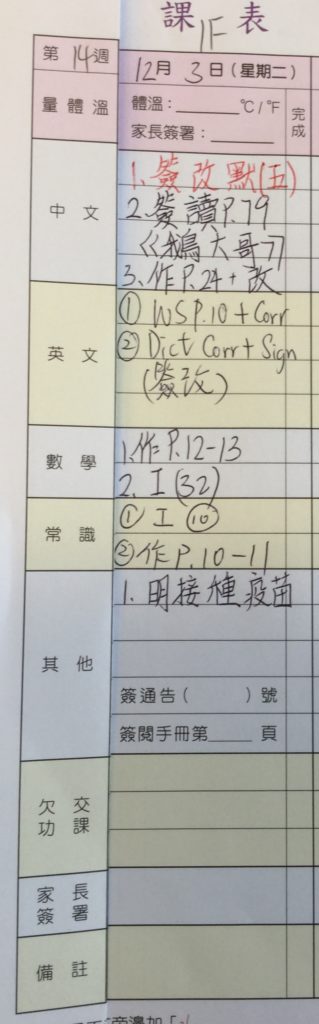 課表
1F
第14週
12月3日(星期二)
量體溫
體溫：______℃/℉
家長簽署：______
完成
中文
1.簽改默(五)
2.簽讀P.79
《鵝大哥》
3.作P.24+改
英文
① WS P.10 + Corr
② Dict Corr + Sign
(簽改)
數學
1.作P.12-13
2. I (32)
常識
① I ⑩
②作P.10-11
其他
1.明接種疫苗
簽通告(      )號
簽閱手冊第____頁
欠交功課
家長簽署
備註
旁邊加「